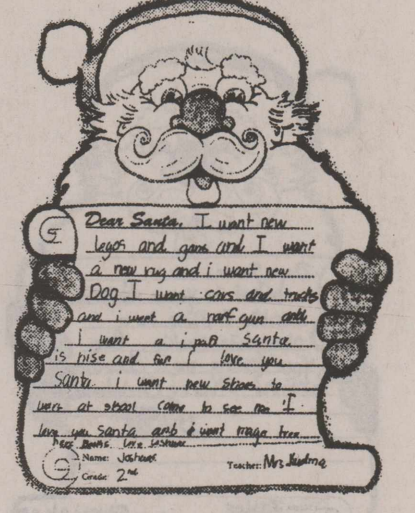 Dear Santa, I want new
legos and and I want
a new rug and i want new
Dog I want cars and trucks
and i want a narf gun and
i want a i pad Santa
is nise and I love you
Santa i want new shoes to
at shool come to see me I
love you santa and i want
Books Love
Name: Joshawa Teacher: Mrs
Grade: 2nd